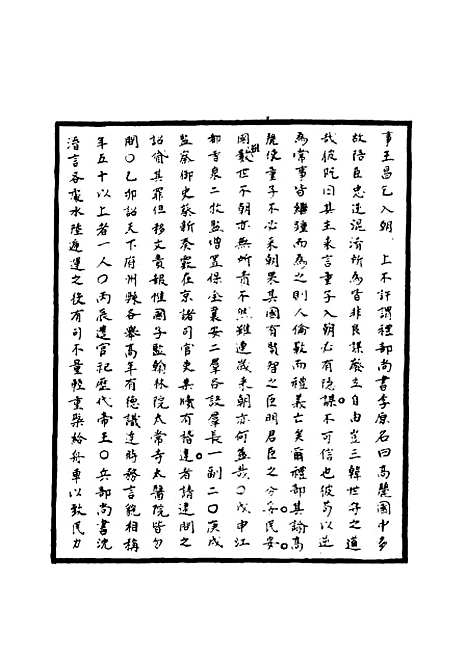 事王昌乞入朝　上不許謂禮部尚書李原名曰高麗國中多
故陪臣忠逆混淆所為皆非良謀廢立自由豈三韓世守之道
哉彼既囚其主來言童子入朝必有隱謀不可信也彼苟以逆
為常事皆繼踵而為之則人倫斁而禮義亡矣爾禮部其諭高
麗使童子不必來朝果其國有賢智之臣明君臣之分妥民安
國數世不朝亦無所責不然雖連歲來朝亦何益哉〇戊申江
都寺泉二牧監增置保全襄安二群各設群長一副二〇庚戌
監察御史蔡新奏設在京諸司官吏案牘有稽違者請逮問之
詔貸其罪但移文責報惟國子監翰林院太常寺太醫院皆勿
問〇乙卯詔天下府州縣各舉高年有德識達時務言貌相稱
年五十以上者一人〇丙辰遣官祀歷代帝王〇兵部尚書沈
溍言各處水陸遞運之役有司不量輕重槩給舟車以致民力